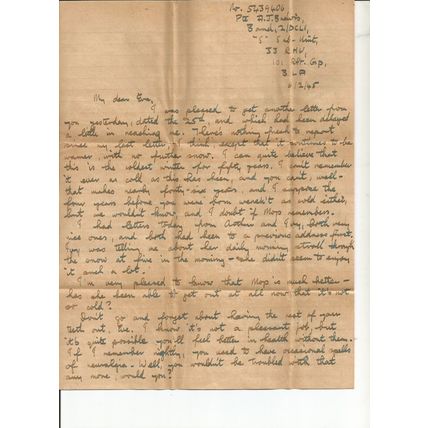 No. 5439406
Pte A.J. Brewis,
Band, 2/DCLI,
"S" Sub-Unit,
33 RHU,
101 Rft. Gp,
BLA
6/2/45
My dear Eve,
I was pleased to get another letter from
you yesterday, dated the 25th, and which had been delayed
a little in reaching me. There's nothing fresh to report
since my last letter, I think, except that it continues to be
warmer, with no further snow. I can quite believe that
this is the coldest winter for fifty years. I can't remember
it ever as cold as this has been, and you can't, well –
that makes nearly forty-six years, and I suppose the
four years before you were born weren't as cold either,
but we wouldn't know, and I doubt if Mops remembers.
I had letters today from Arthur and Guy, both very
nice ones, and both had been to a previous address first.
Guy was telling me about her daily morning stroll through
the snow at five in the morning – she didn't seem to enjoy
it such a lot.
I'm very pleased to know that Mops is much better –
has she been able to get out at all now that it's not
so cold?
Don't go and forget about having the rest of your
teeth out, Eve. I know it's not a pleasant job, but
it's quite possible you'll feel better in health without them.
If I remember rightly, you used to have occasional spells
of neuralgia – Well, you wouldn't be troubled with that
any more, would you?